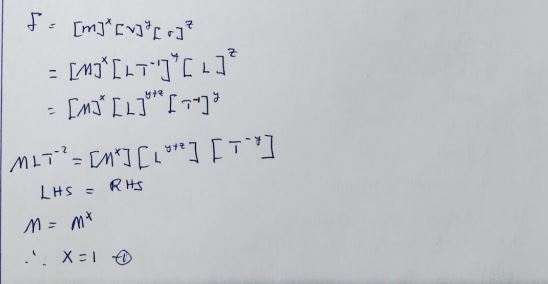 F = [m]ˣ[v]ʸ[r]ᶻ
= [M]ˣ[LT⁻¹]ʸ[L]ᶻ
= [M]ˣ[L]ʸ⁺ᶻ[T⁻¹]ʸ
MLT⁻² = [Mˣ][Lʸ⁺ᶻ][T⁻ʸ]
LHS = RHS
M = Mˣ
∴ x = 1 —①